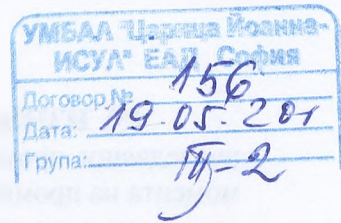 УМБАЛ "Царица Йоанна-
ИСУЛ" ЕАД, София
Договор № 156
Дата: 19.05.201
Група: III-2